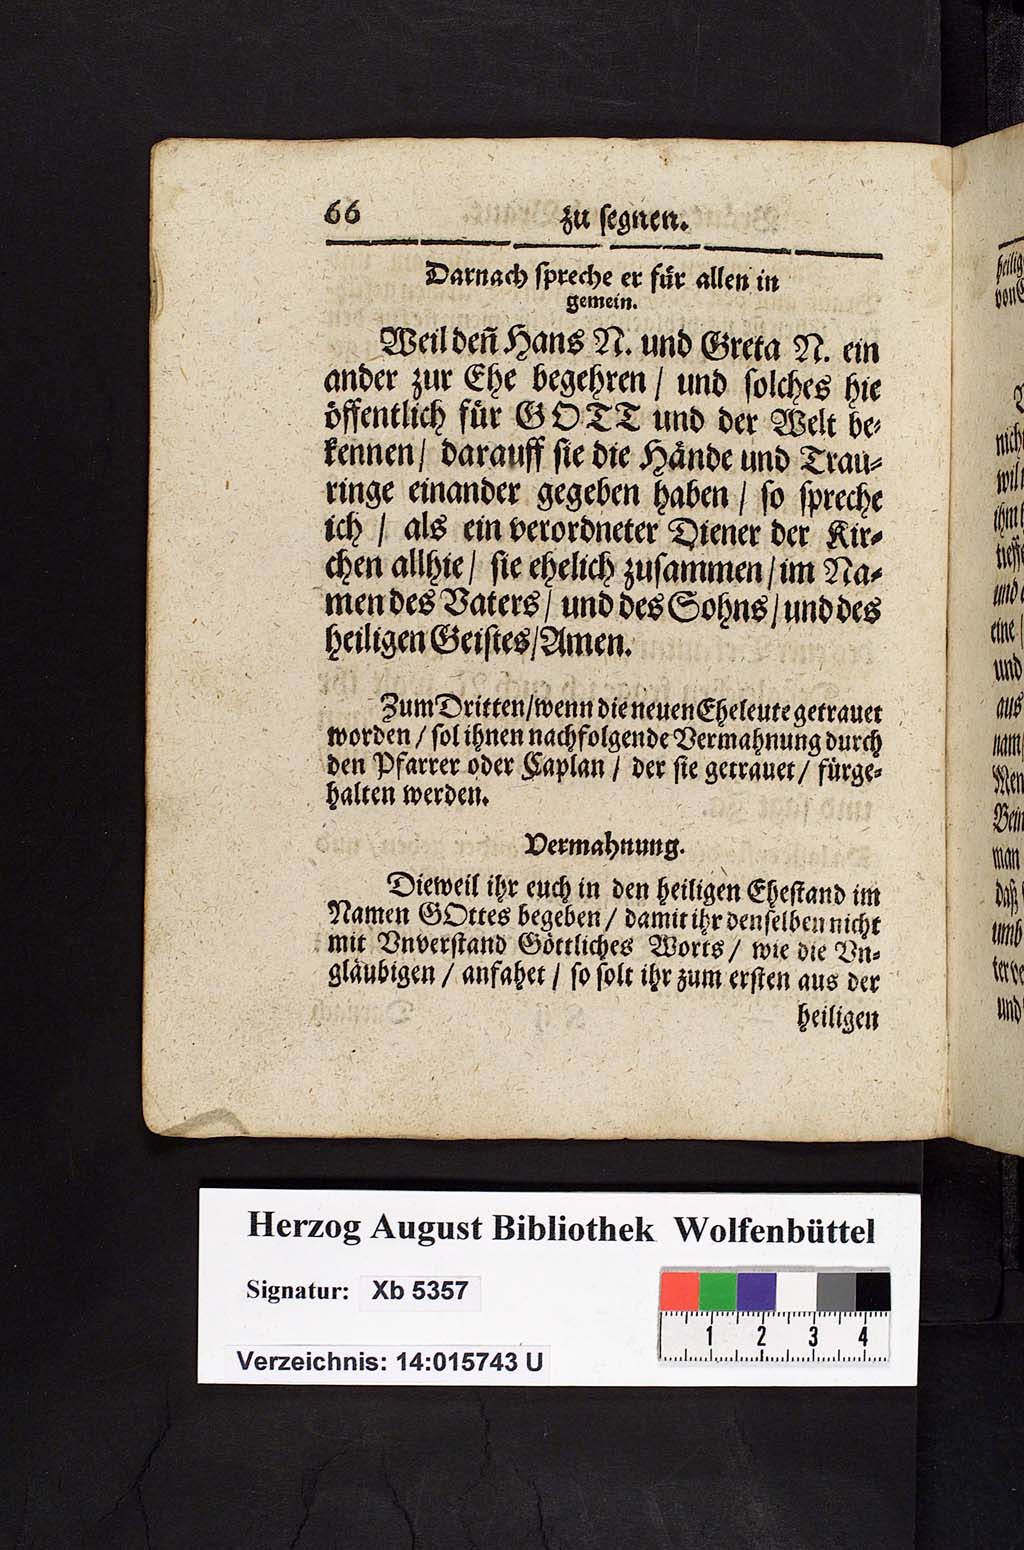 66 zu segnen.
Darnach spreche er für allen in
gemein.
Weil deñ Hans N. und Greta N. ein
ander zur Ehe begehren / und solches hie
öffentlich für GOTT und der Welt be-
kennen / darauff sie die Hände und Trau-
ringe einander gegeben haben / so spreche
ich / als ein verordneter Diener der Kir-
chen allhie / sie ehelich zusammen / im Na-
men des Vaters / und des Sohns / und des
heiligen Geistes / Amen.
Zum Dritten / wenn die neuen Eheleute getrauet
worden / sol ihnen nachfolgende Vermahnung durch
den Pfarrer oder Caplan / der sie getrauet / fürge-
halten werden.
Vermahnung.
Dieweil ihr euch in den heiligen Ehestand im
Namen GOttes begeben / damit ihr denselben nicht
mit Vnverstand Göttliches Worts / wie die Vn-
gläubigen / anfahet / so solt ihr zum ersten aus der
heiligen
nich
und
eine
und
aus
nam
Men
Bein
man
daß
umb
und
Herzog August Bibliothek Wolfenbüttel
Signatur: Xb 5357
1 2 3 4
Verzeichnis: 14:015743 U